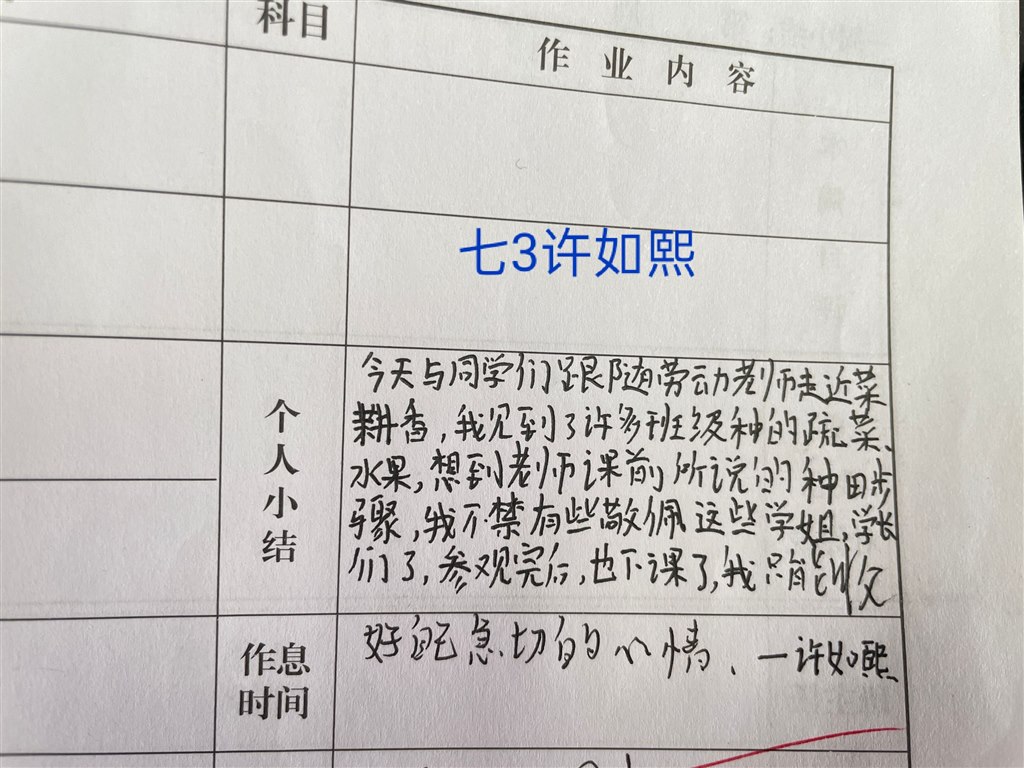 科目
作业内容
七3许如熙
个人小结
今天与同学们跟随劳动老师走近菜
耕香,我见到了许多班级种的蔬菜、
水果,想到老师课前所说的种田步
骤,我不禁有些敬佩这些学姐,学长
们了,参观完后,也下课了,我只能收
作息时间
好自己急切的心情、一许如熙